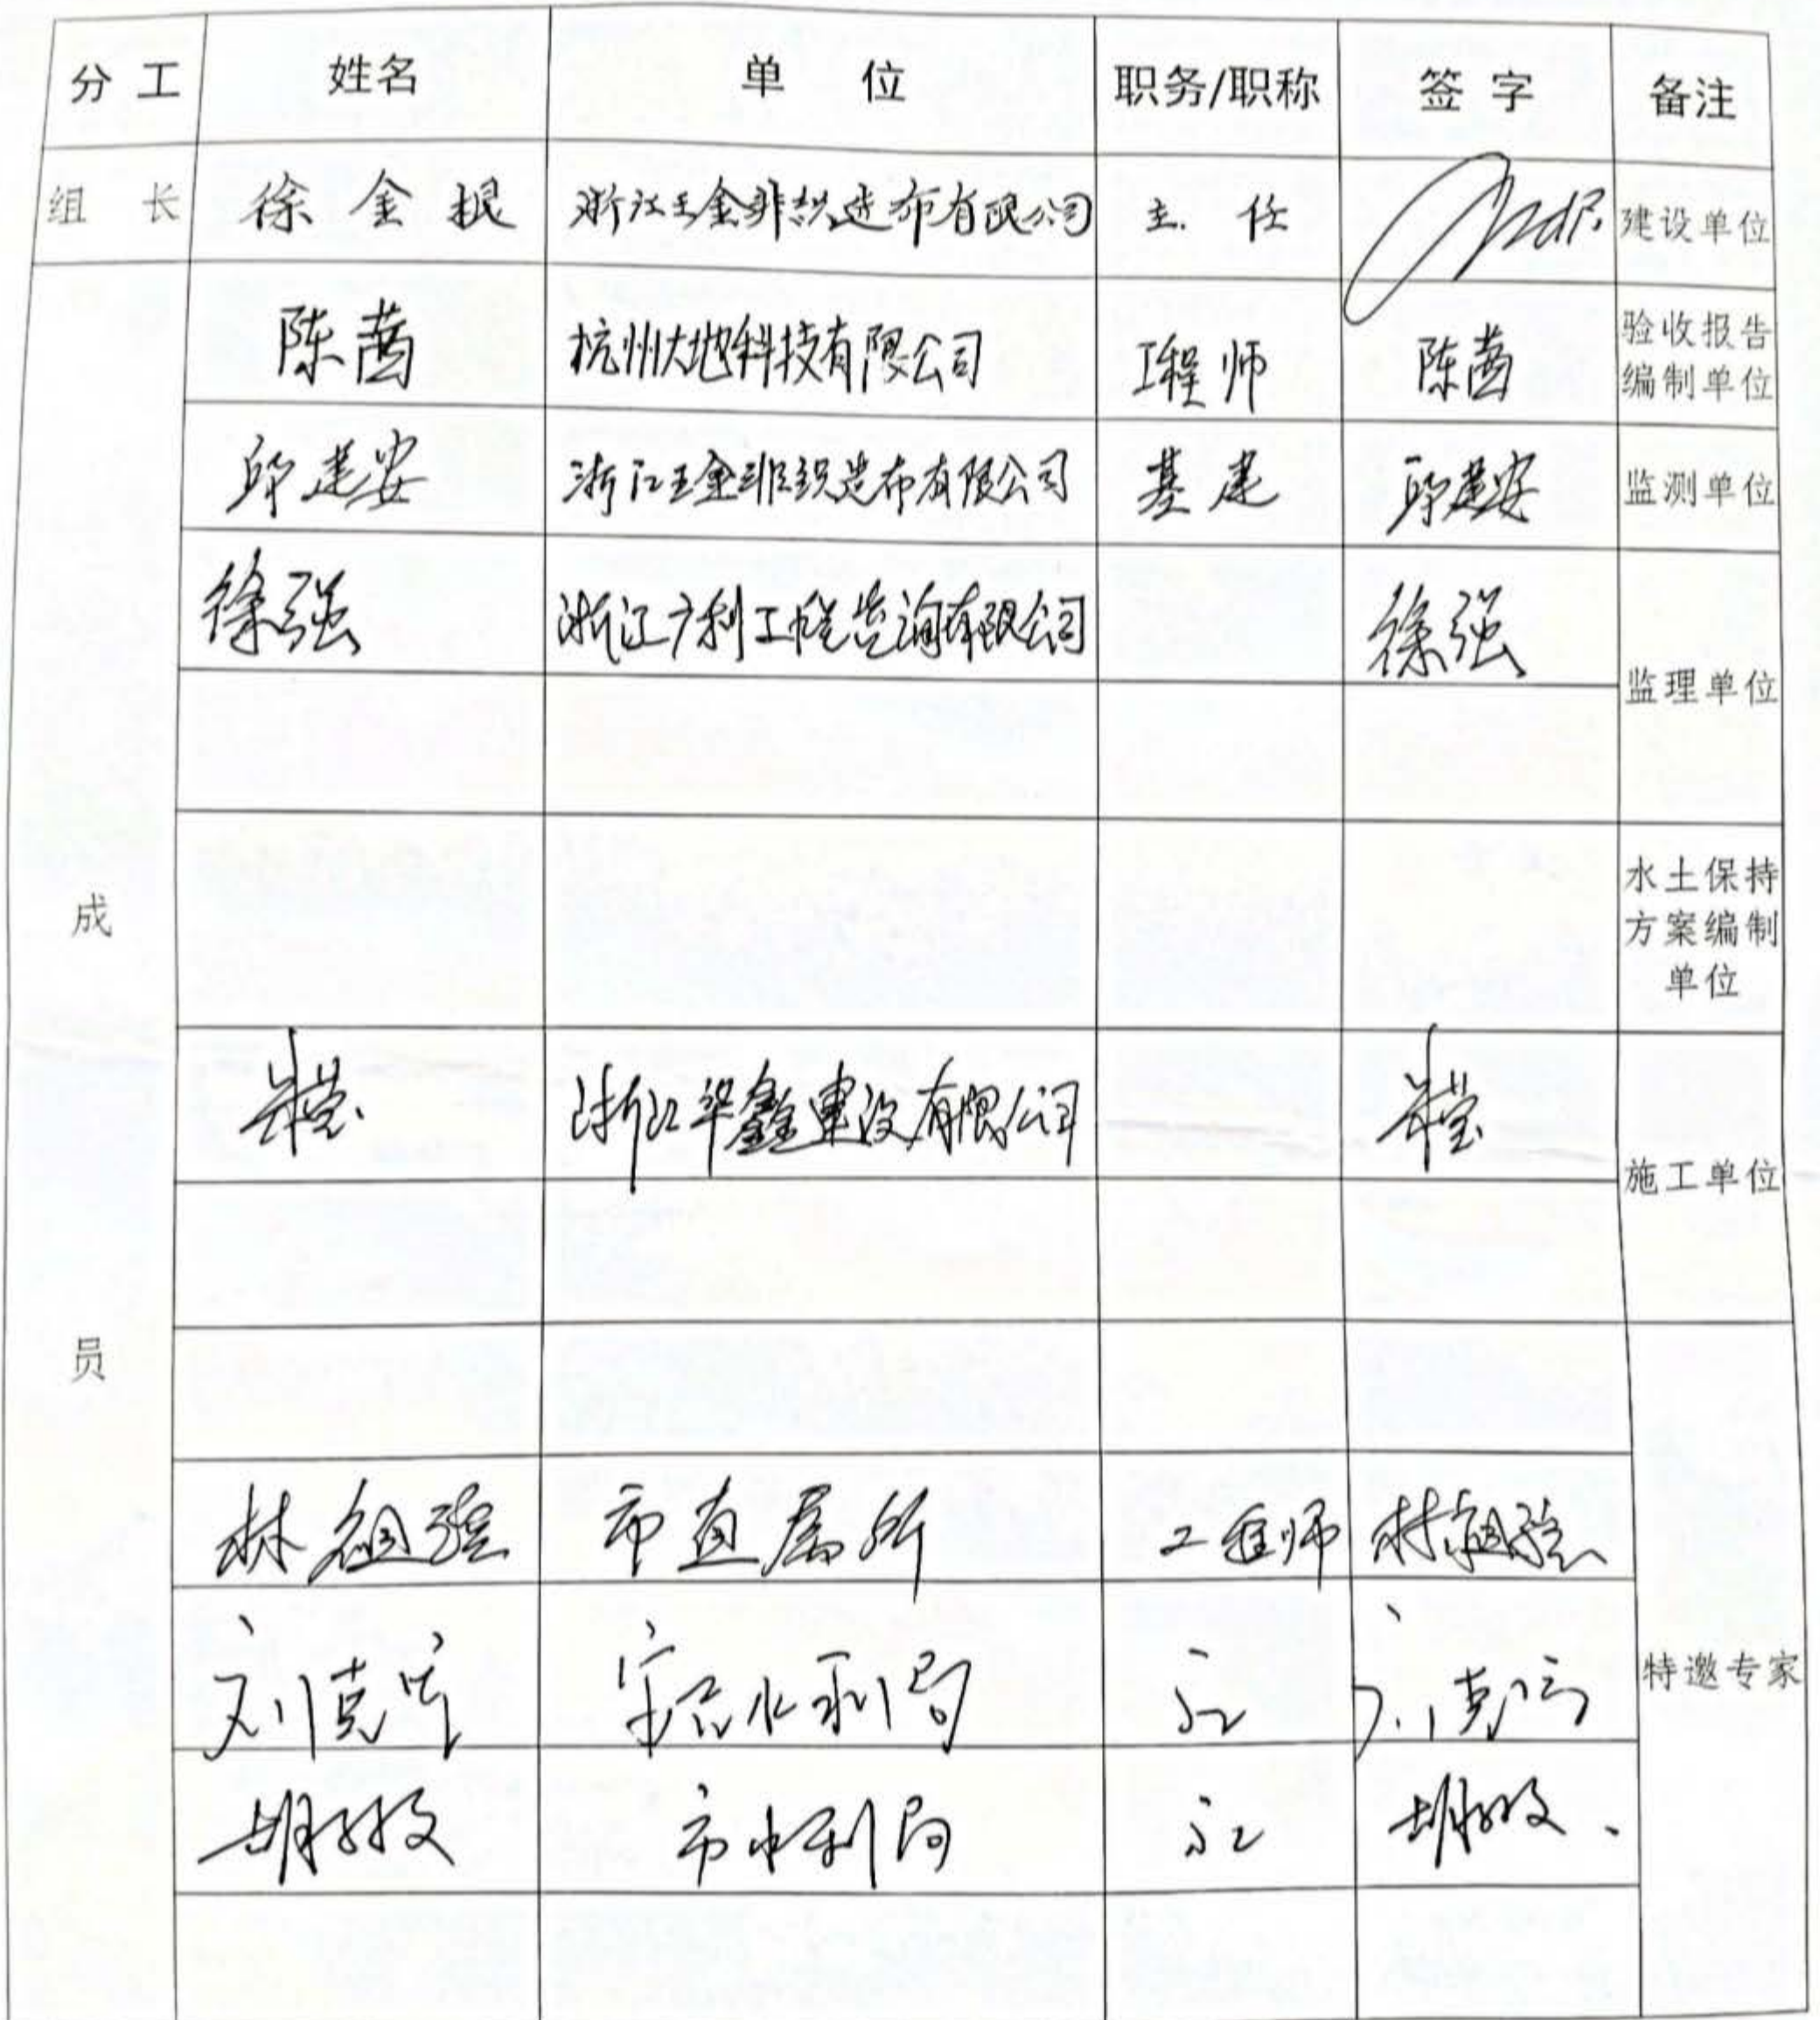 分工 姓名 单位 职务/职称 签字 备注
组长 徐金根 浙江王金非织造布有限公司 主任 建设单位
陈茜 杭州大地科技有限公司 工程师 陈茜 验收报告
编制单位
邱建安 浙江王金非织造布有限公司 基建 邱建安 监测单位
徐强 浙江广利工程咨询有限公司 徐强
监理单位
成
水土保持
方案编制
单位
浙江华鑫建设有限公司
施工单位
员
林祖强 市直属所 工程师 林祖强
水利局
特邀专家
市水利局